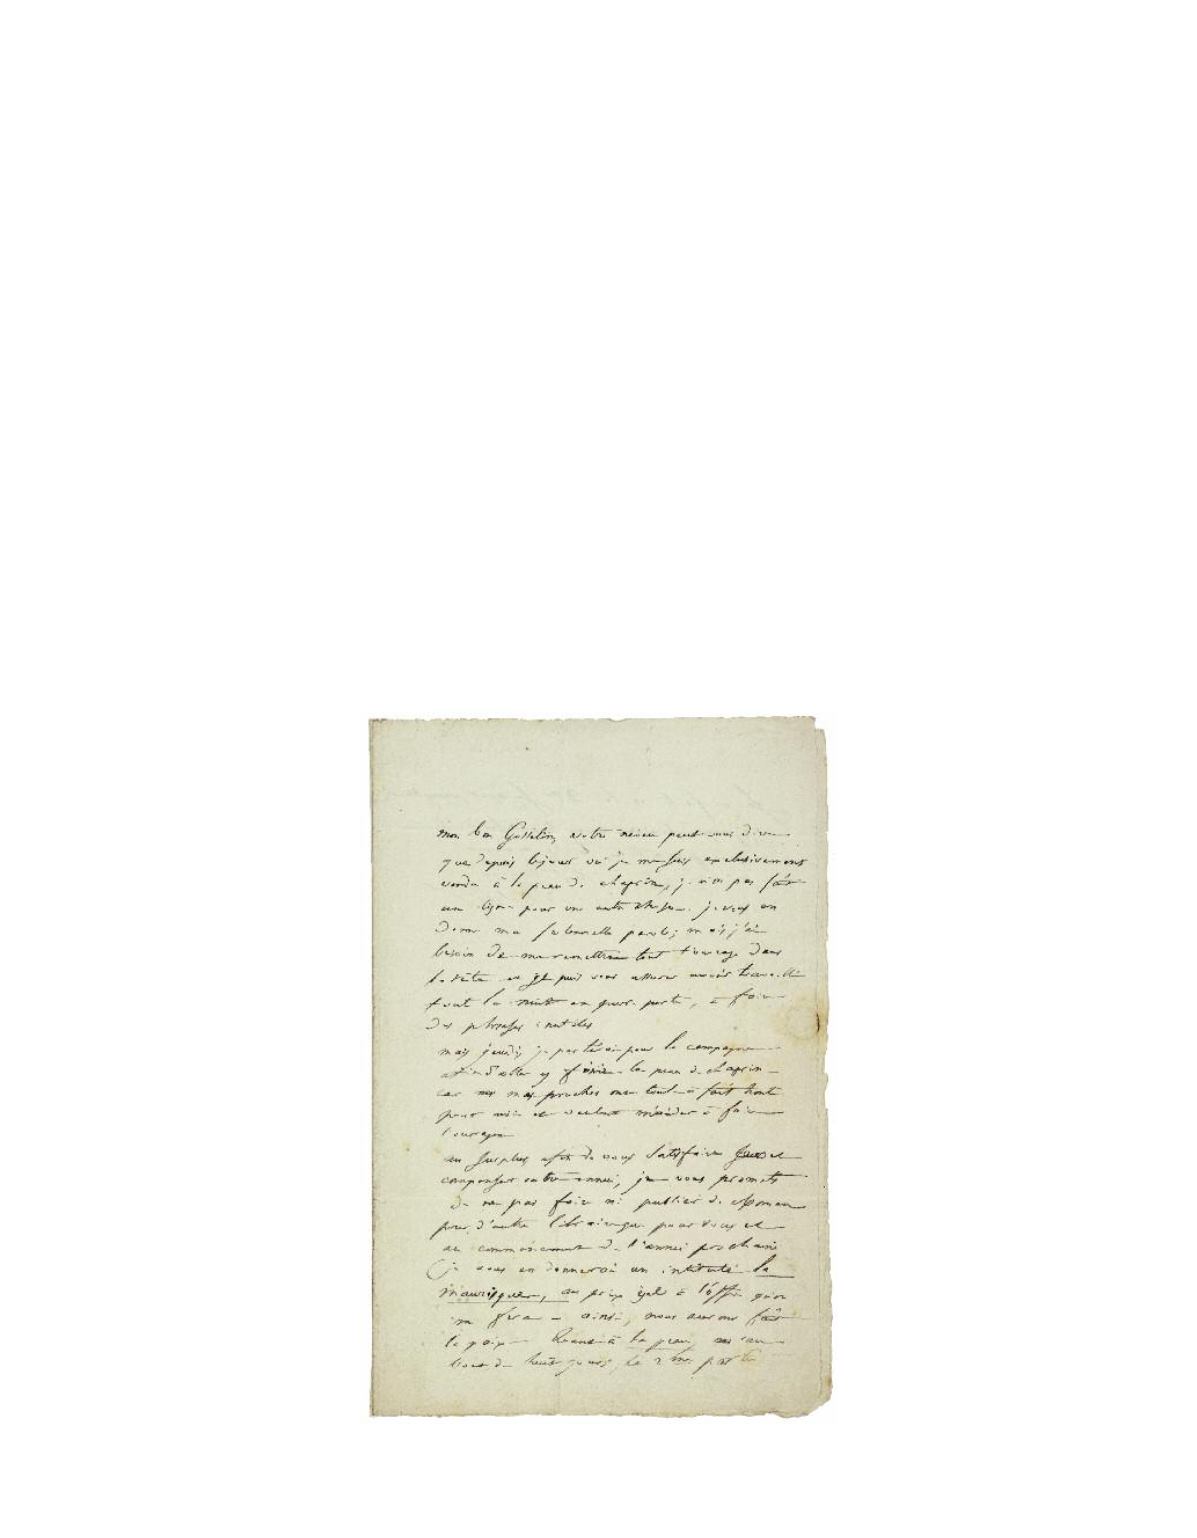 mon bon Gosselin, votre neveu peut vous dire
que depuis le jour où je me suis exclusivement
vendu à la peau de chagrin, je n'ai pas fait
une ligne pour une autre chose. je vous en
donne ma solennelle parole; mais j'ai
besoin de me remettre tout l'ouvrage dans
la tête et je puis vous assurer avoir travaillé
tout la nuit en pure perte, à faire
des phrases inutiles
mais jeudi, je partirai pour la campagne
afin d'aller y finir la peau de chagrin
car mes proches ont tout à fait honte
pour moi et veulent m'aider à faire
l'ouvrage
au surplus afin de vous satisfaire et
compenser cette année, je vous promets
de ne pas faire ni publier de Roman
pour d'autre libraire que pour vous et
au commencement de l'année prochaine
je vous en donnerai un intitulé la
mauresque, au prix égal à l'offre qu'on
m'en fera ainsi, nous aurons fait
la paix à la peau, au
bout de huit jours, le 2me